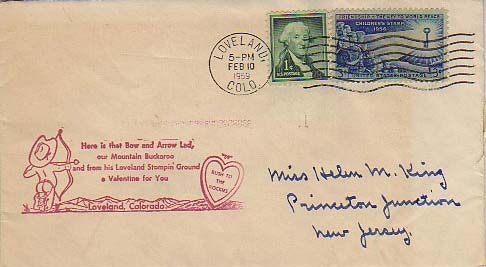 LOVELAND,
5-PM
FEB 10
1959
COLO.
1¢
U.S. POSTAGE
FRIENDSHIP - THE KEY TO WORLD PEACE
CHILDREN'S STAMP
1956
3¢
UNITED STATES POSTAGE
Here is that Bow and Arrow Lad,
our Mountain Buckaroo
and from his Loveland Stampin' Ground
a Valentine for You
Loveland, Colorado
RUSH TO
THE
ROCKIES
Miss Helen M. King
Princeton Junction
New Jersey.